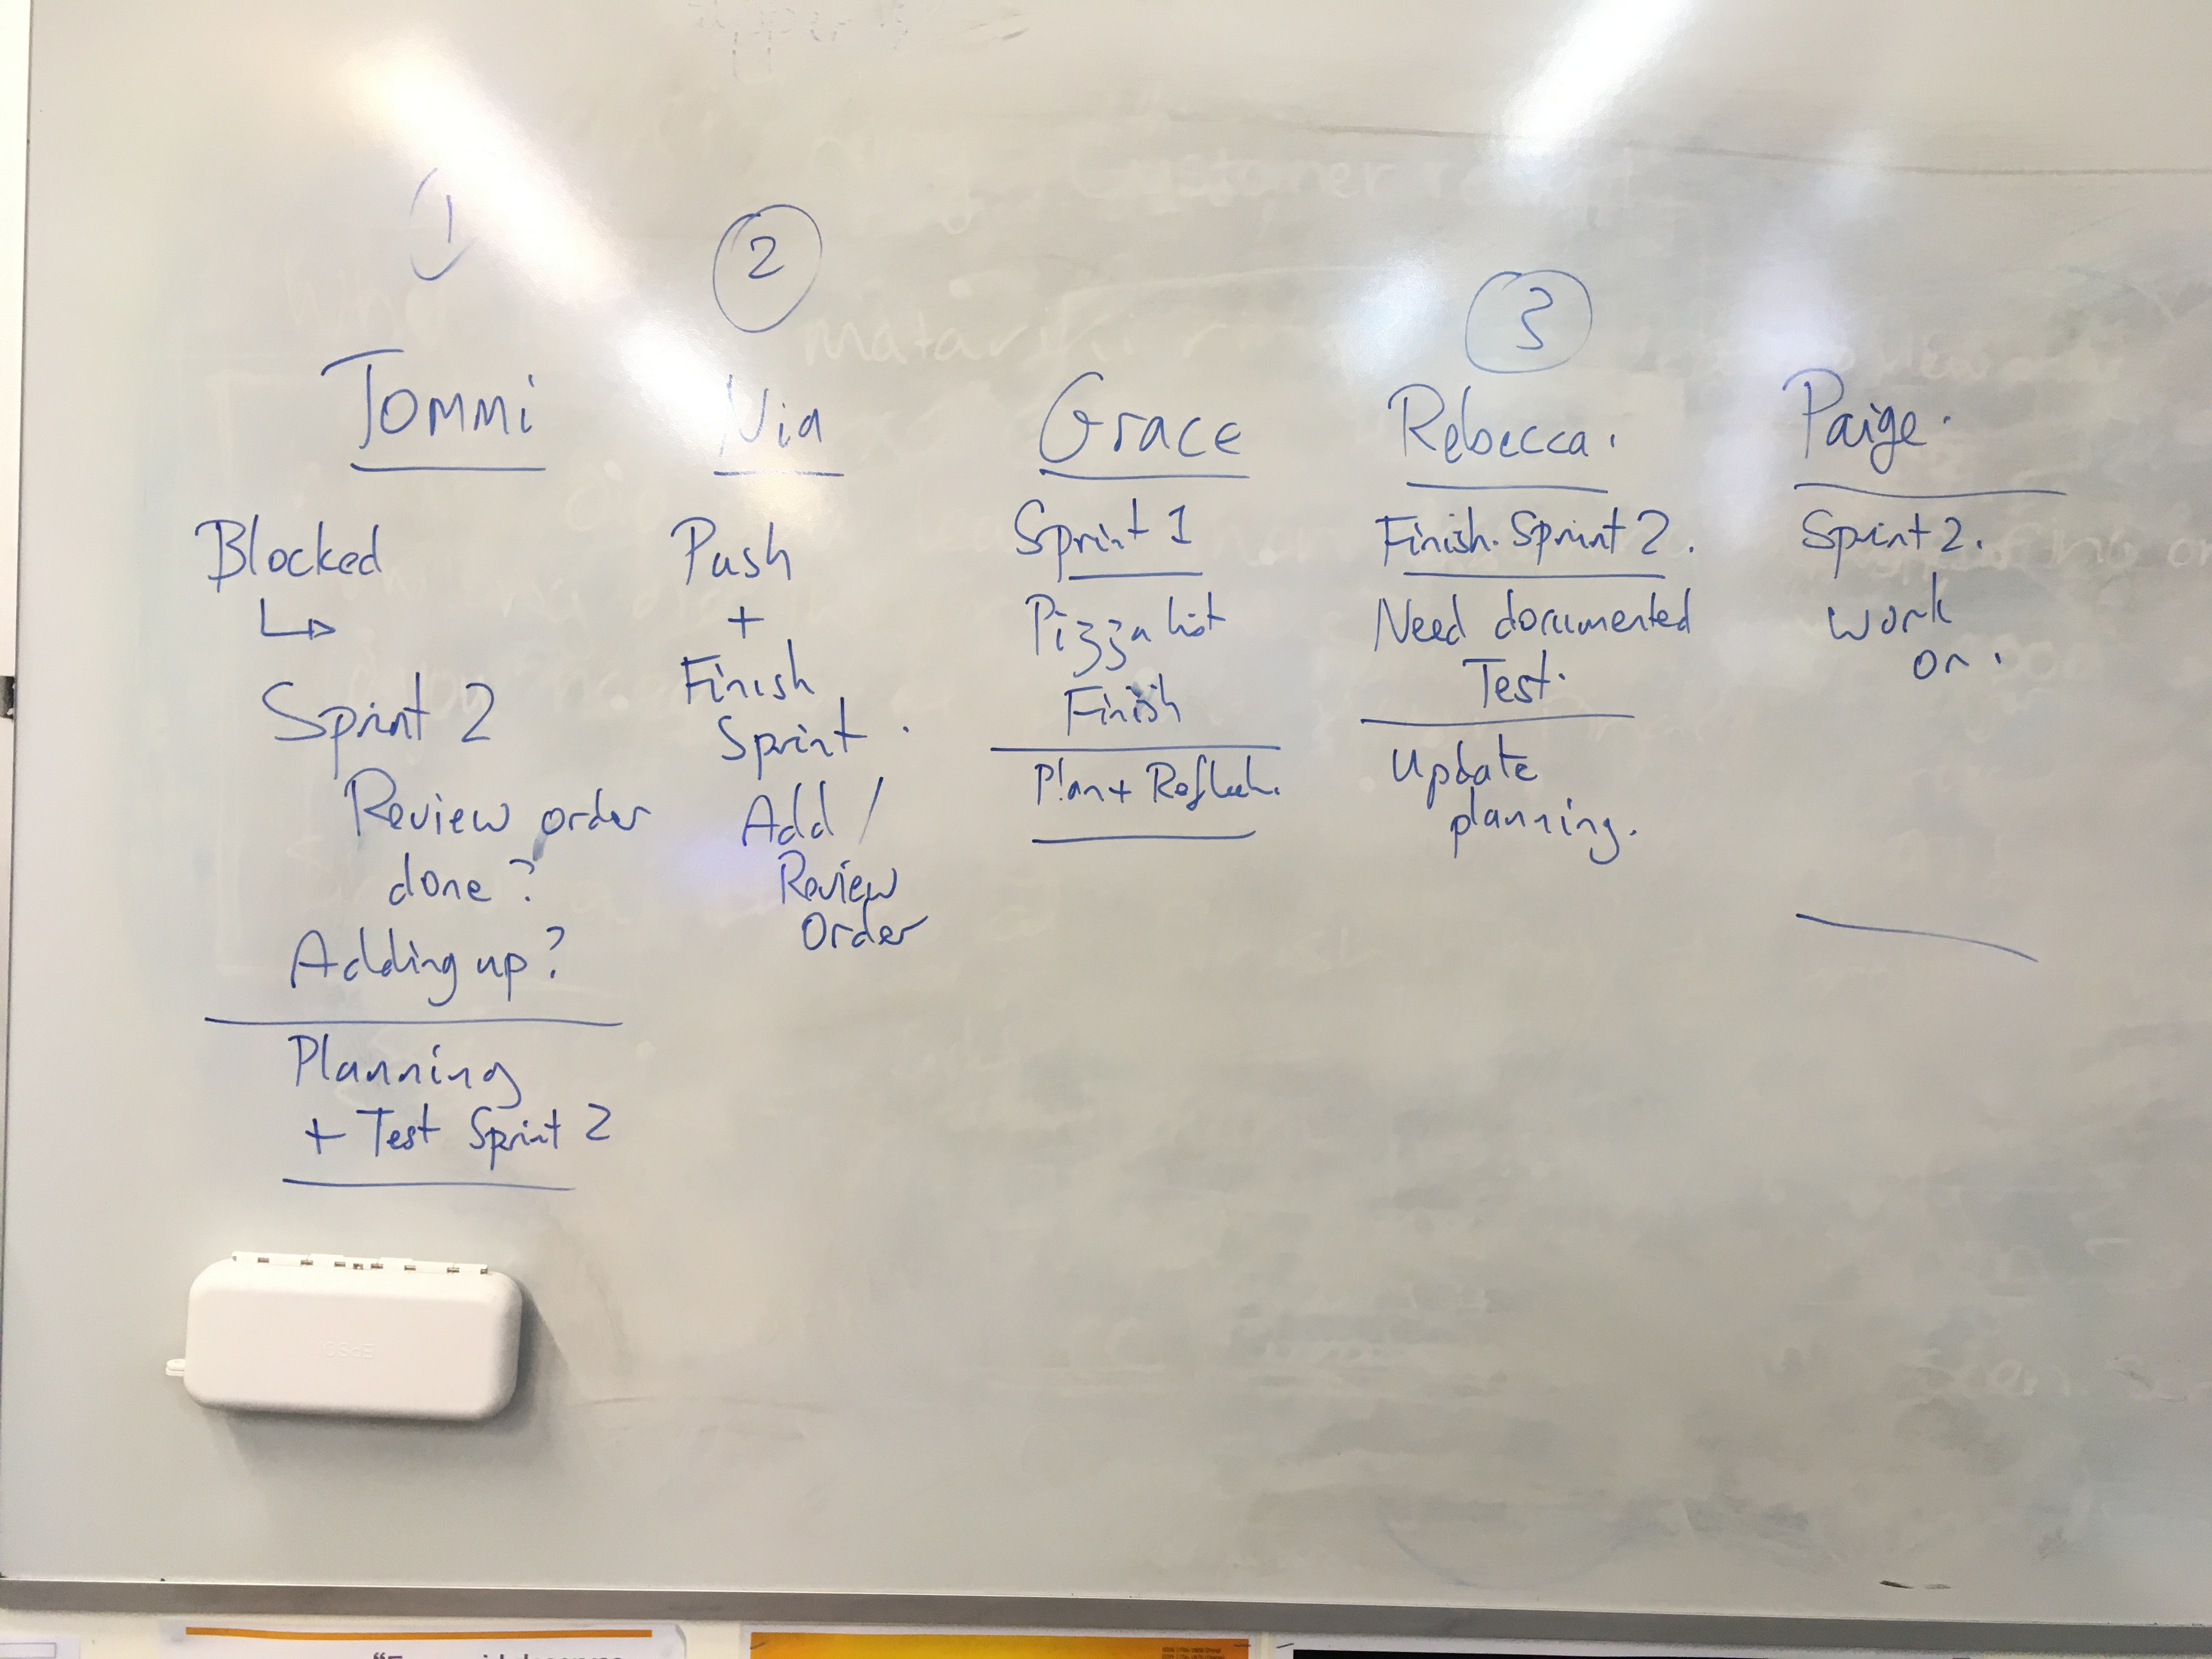 1
2
3
Tommi
Blocked
Sprint 2
Review order
done?
Adding up?
Planning
+ Test Sprint 2
Nia
Push
+
Finish
Sprint.
Add /
Review
Order
Grace
Sprint 1
Pizza list
Finish
Plan + Reflect.
Rebecca.
Finish. Sprint 2.
Need documented
Test.
Update
planning.
Paige.
Sprint 2.
work
on.
EPSON
Customer